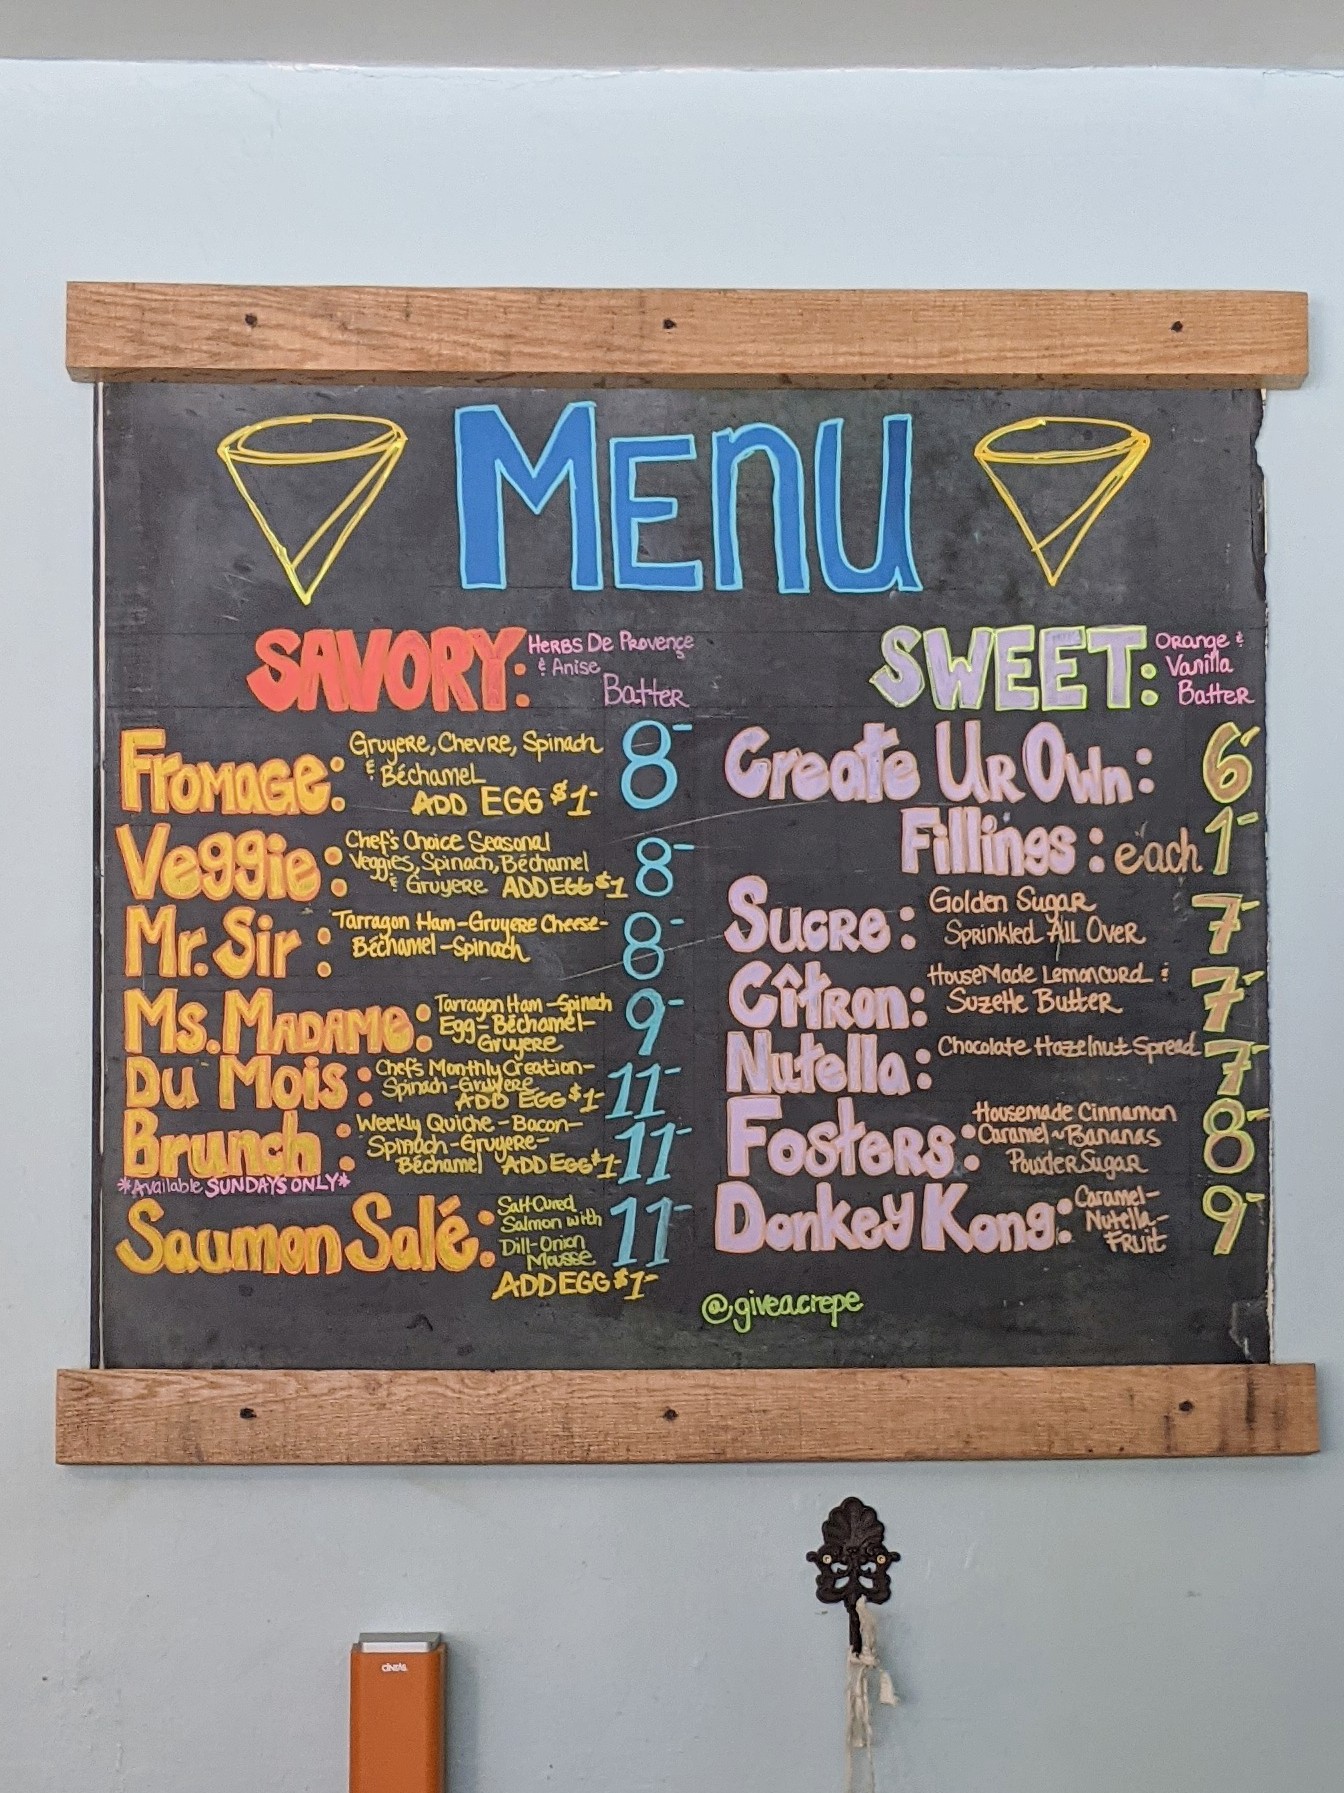 MENU
SAVORY: HERBS DE PROVENÇE
& Anise
BATTER
Fromage: GRUYERE, CHEVRE, SPINACH 8-
& BÉCHAMEL
ADD EGG $1-
Veggie: Chef's Choice Seasonal 8-
Veggies, Spinach, Béchamel
& GRUYERE ADD EGG $1
Mr. Sir: Tarragon Ham-Gruyere Cheese- 8-
Béchamel-Spinach
Ms. MADAME: Tarragon Ham-Spinach 9-
Egg-Béchamel-
Gruyere
Du Mois: Chef's Monthly Creation- 11-
Spinach-Gruyere
ADD EGG $1-
Brunch: Weekly Quiche-Bacon- 11-
Spinach-Gruyere-
Béchamel ADD EGG $1-
*Available SUNDAYS ONLY*
Saumon Salé: Salt Cured 11-
Salmon with
Dill-Onion
Mousse
ADD EGG $1-
SWEET: Orange &
Vanilla
Batter
Create Ur Own: 6-
Fillings: each 1-
Sucre: Golden Sugar 7-
Sprinkled All Over
Cîtron: HouseMade Lemoncurd & 7-
Suzette Butter
Nutella: Chocolate Hazelnut Spread 7-
Fosters: Housemade Cinnamon 8-
Caramel~Bananas
Powder Sugar
Donkey Kong: Caramel- 9-
Nutella-
Fruit
@giveacrepe
CINTAS